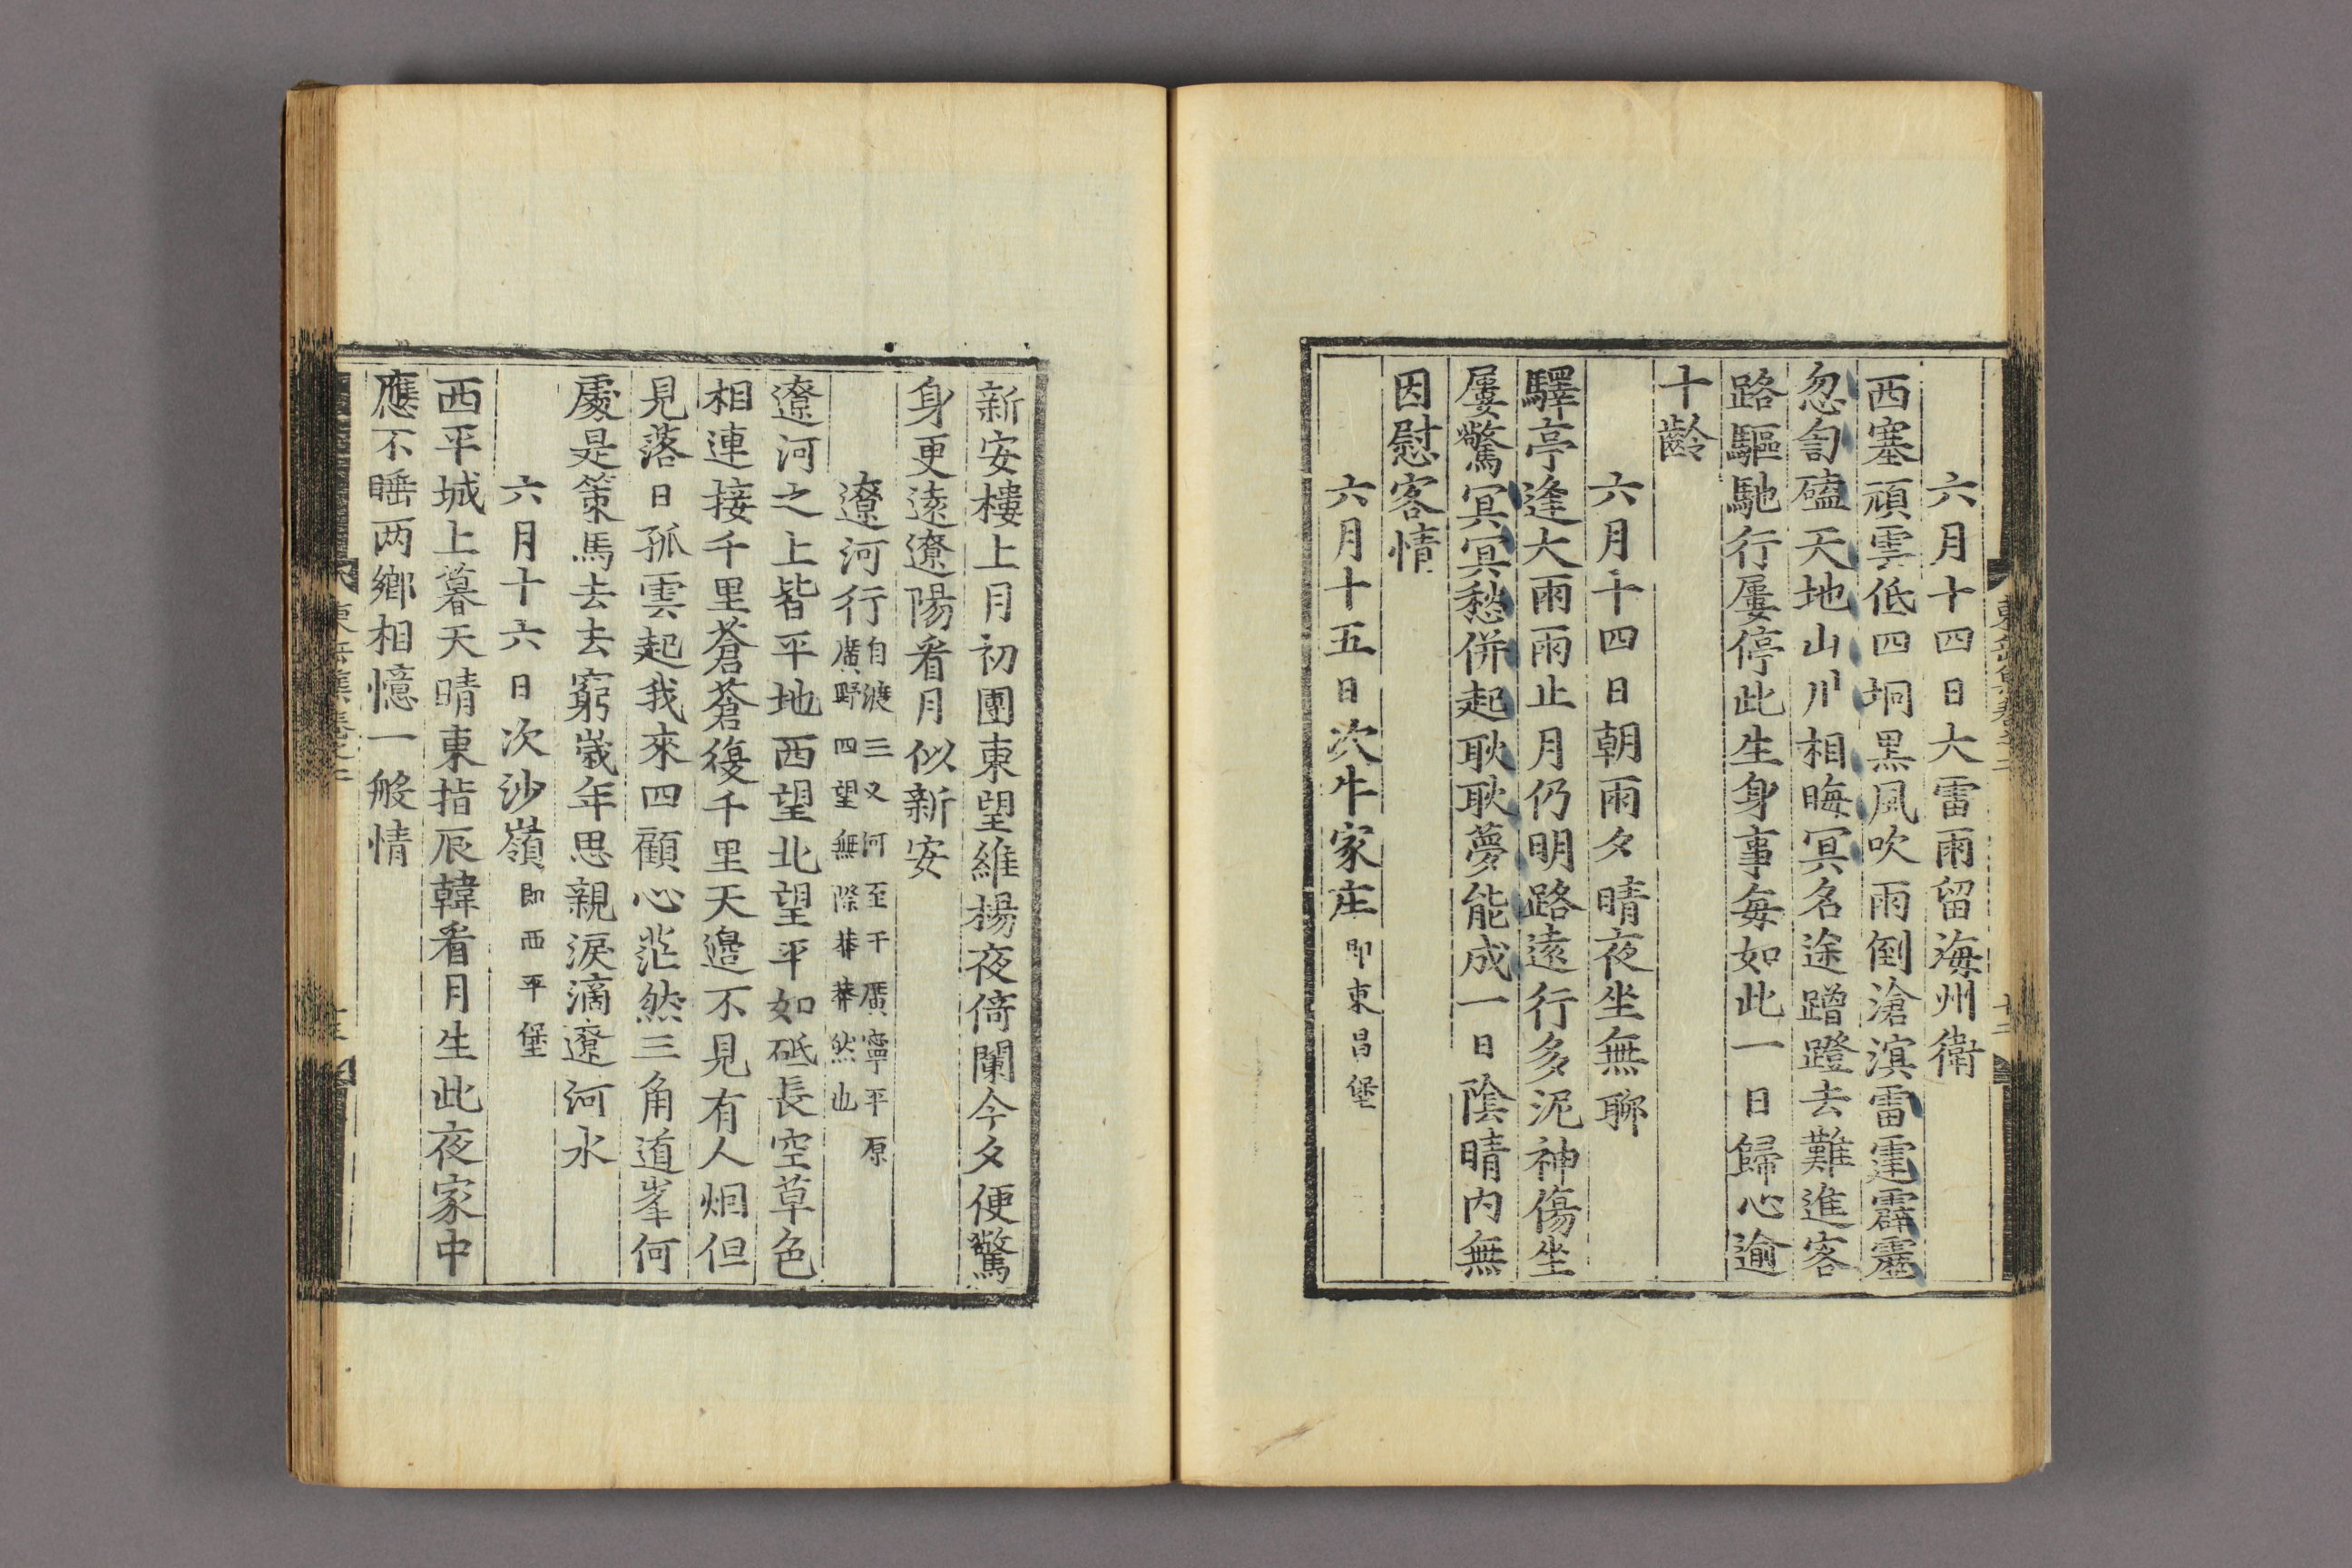 六月十四日大雷雨留海州衛
西塞頑雲低四坰黒風吹雨倒滄溟雷霆霹靂
忽訇磕天地山川相晦冥名途蹭蹬去難進客
路驅馳行屢停此生身事每如此一日歸心逾
十齡
六月十四日朝雨夕晴夜坐無聊
驛亭逢大雨雨止月仍明路遠行多泥神傷坐
屢驚冥冥愁併起耿耿夢能成一日陰晴內無
因慰客情
六月十五日次牛家庄即東昌堡
新安樓上月初團東望維揚夜倚闌今夕便驚
身更遠遼陽看月似新安
遼河行自渡三叉河至干廣寧平原
廣野四望無際莽莽然也
遼河之上皆平地西望北望平如砥長空草色
相連接千里蒼蒼復千里天邊不見有人烟但
見落日孤雲起我來四顧心茫然三角道峯何
處是策馬去去窮嵗年思親淚滴遼河水
六月十六日次沙嶺即西平堡
西平城上暮天晴東指辰韓看月生此夜家中
應不睡两鄉相憶一般情